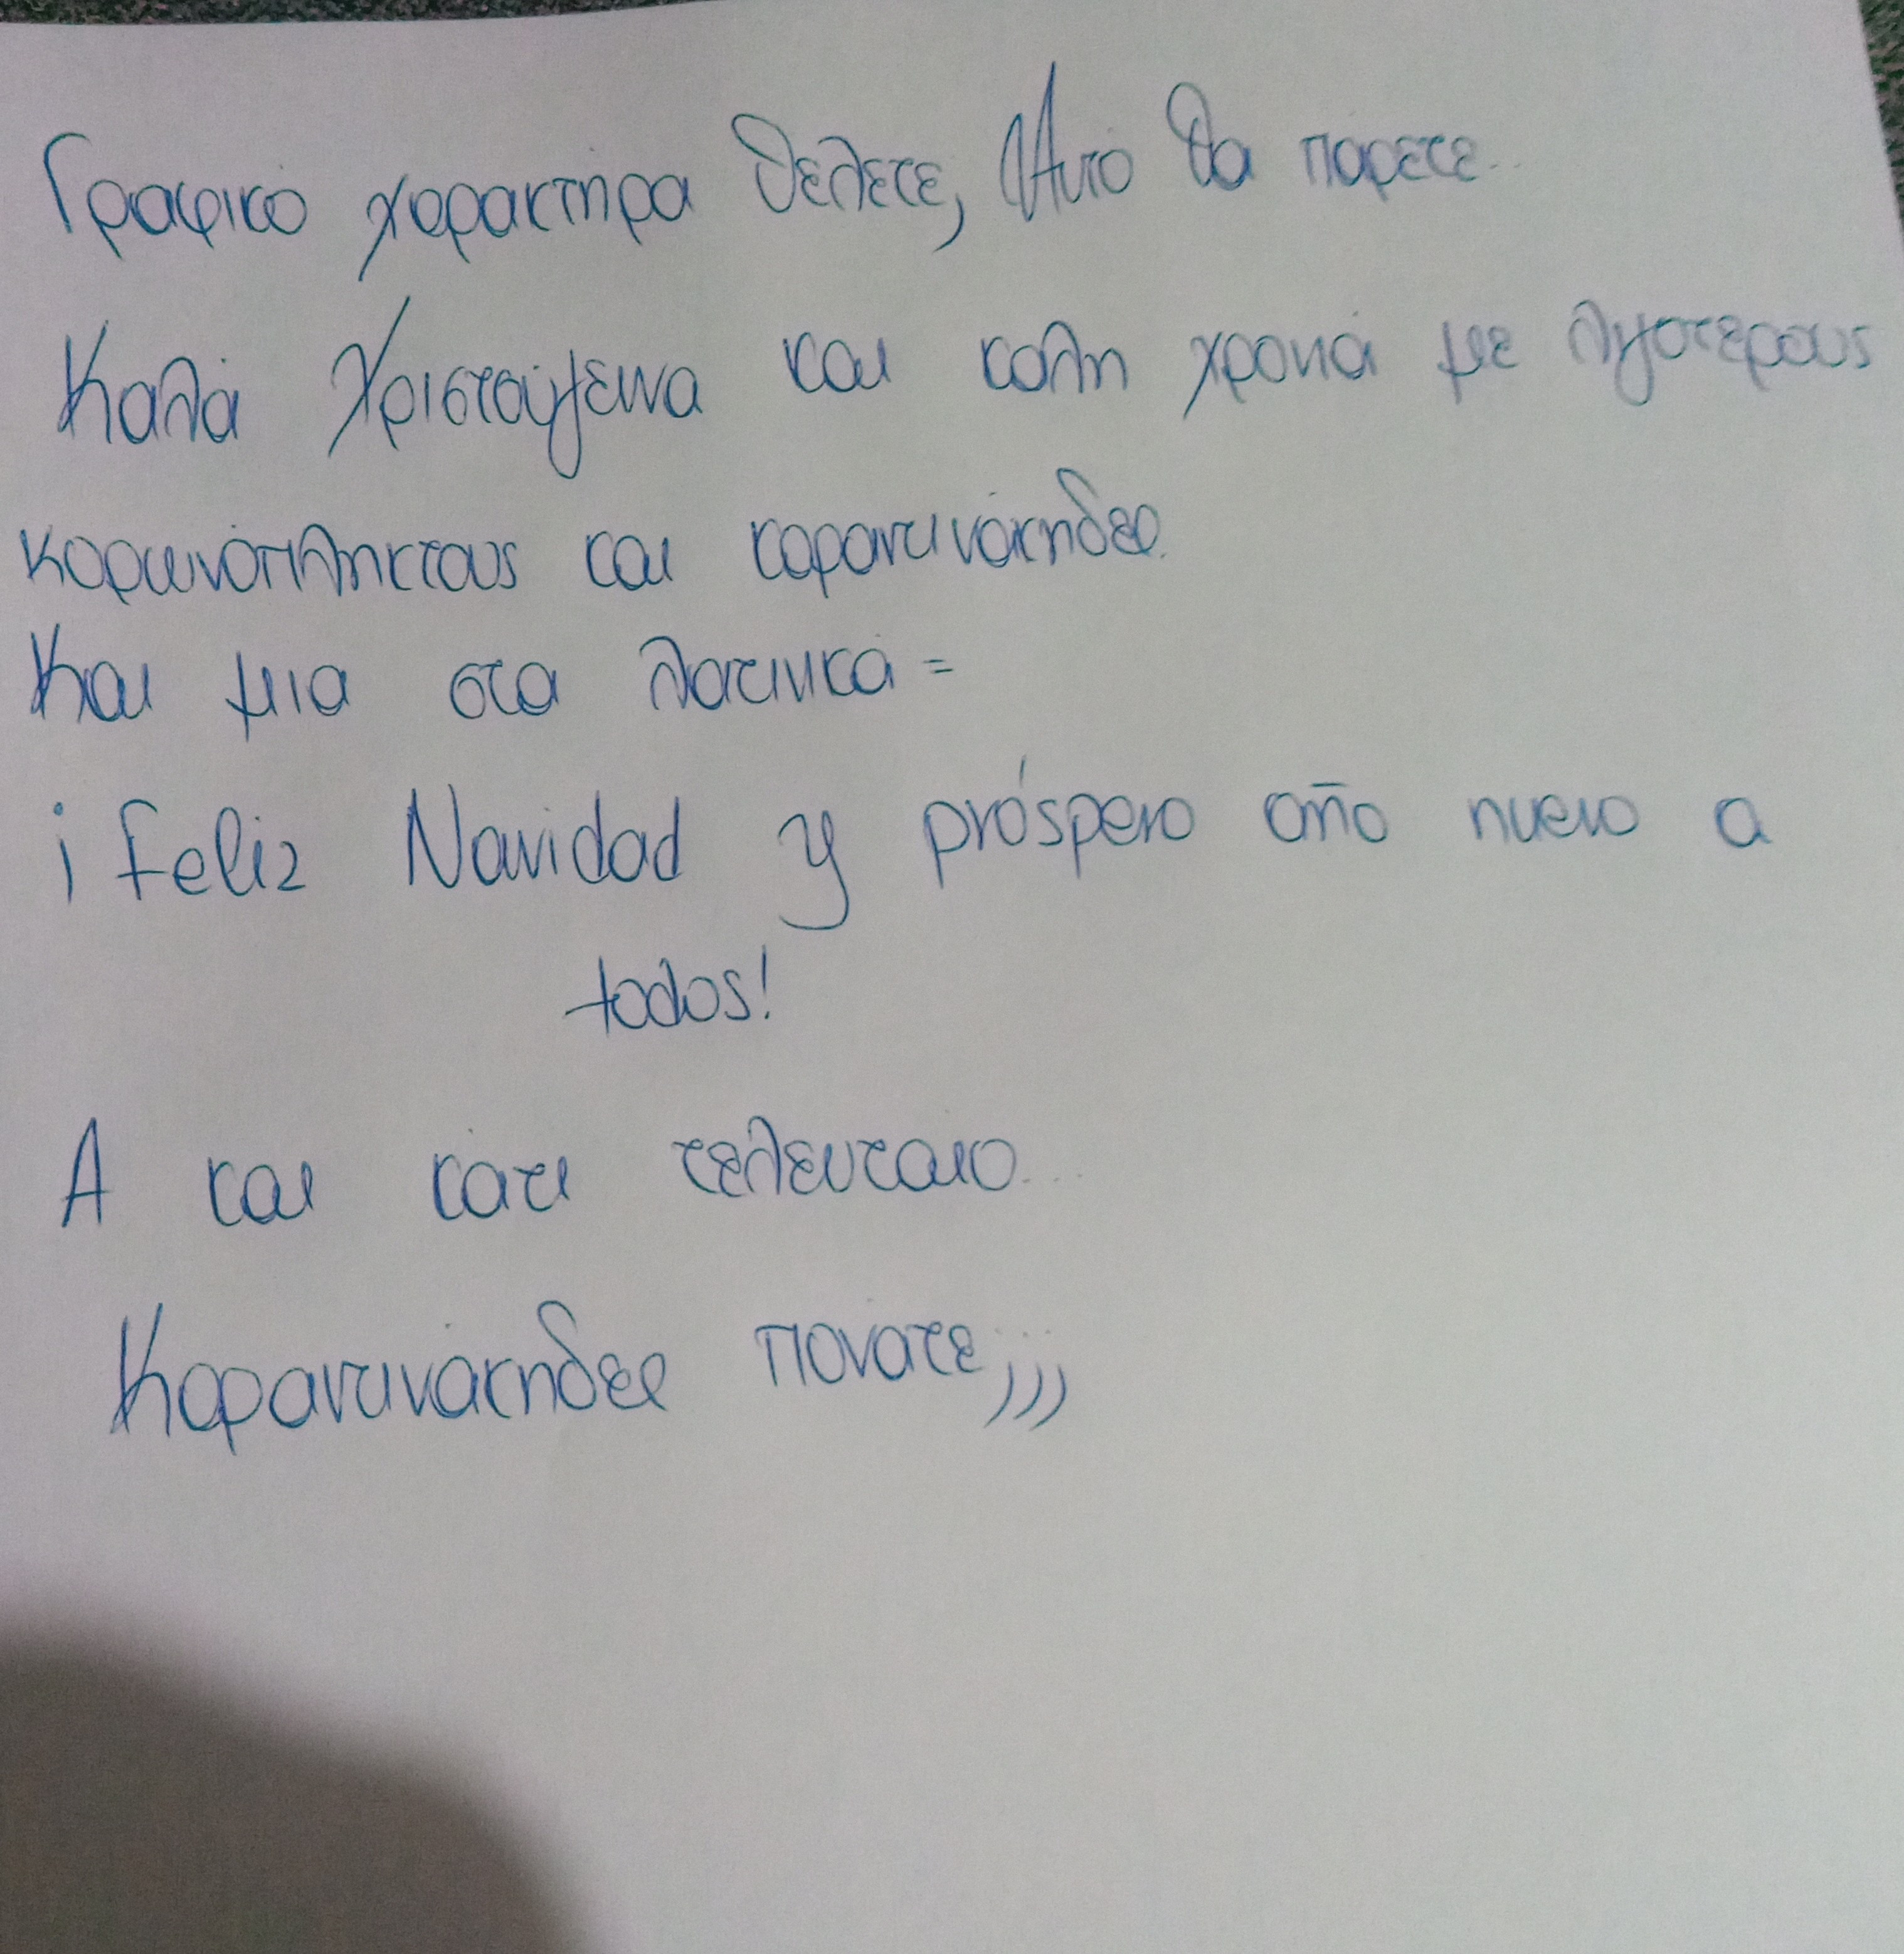 Γραφικό χαρακτήρα θέλετε, Αυτό θα πάρετε..
Καλά Χριστούγεννα και καλή χρονιά με λιγότερους
κορωνόπληκτους και καραντινάκηδες.
Και μια στα λατινικά =
¡Feliz Navidad y próspero año nuevo a
todos!
Α και κάτι τελευταίο...
Καραντινάκηδες πονάτε;;;